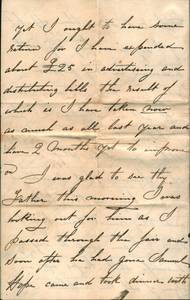 yet I ought to have some
return for I have expended
about £25 in advertising and
distributing bills the result of
which is I have taken now
as much as all last year and
have 2 months yet to improve
on
I was glad to see thy
Father this morning I was
looking out for him as I
passed through the fair and
soon after he had gone Samuel
Hope came and took dinner with